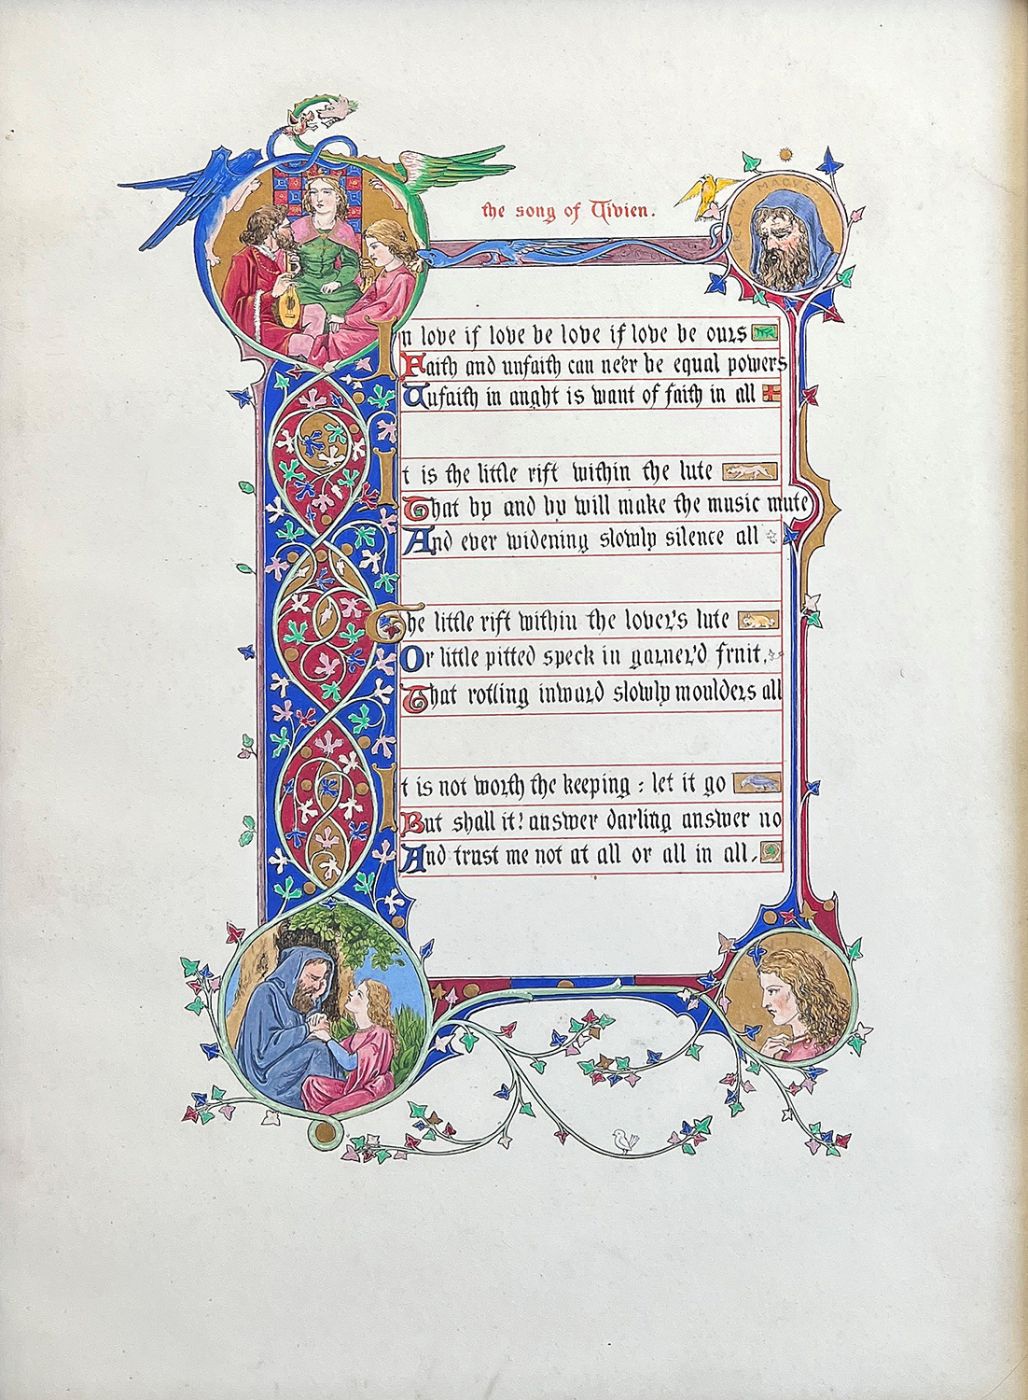 the song of Vivien.
MERLIN MAGVS
In love if love be love if love be ours
Faith and unfaith can ne'er be equal powers
Unfaith in aught is want of faith in all
It is the little rift within the lute
That by and by will make the music mute
And ever widening slowly silence all
The little rift within the lover's lute
Or little pitted speck in garner'd fruit.
That rotting inward slowly moulders all
It is not worth the keeping : let it go
But shall it? answer darling answer no
And trust me not at all or all in all.